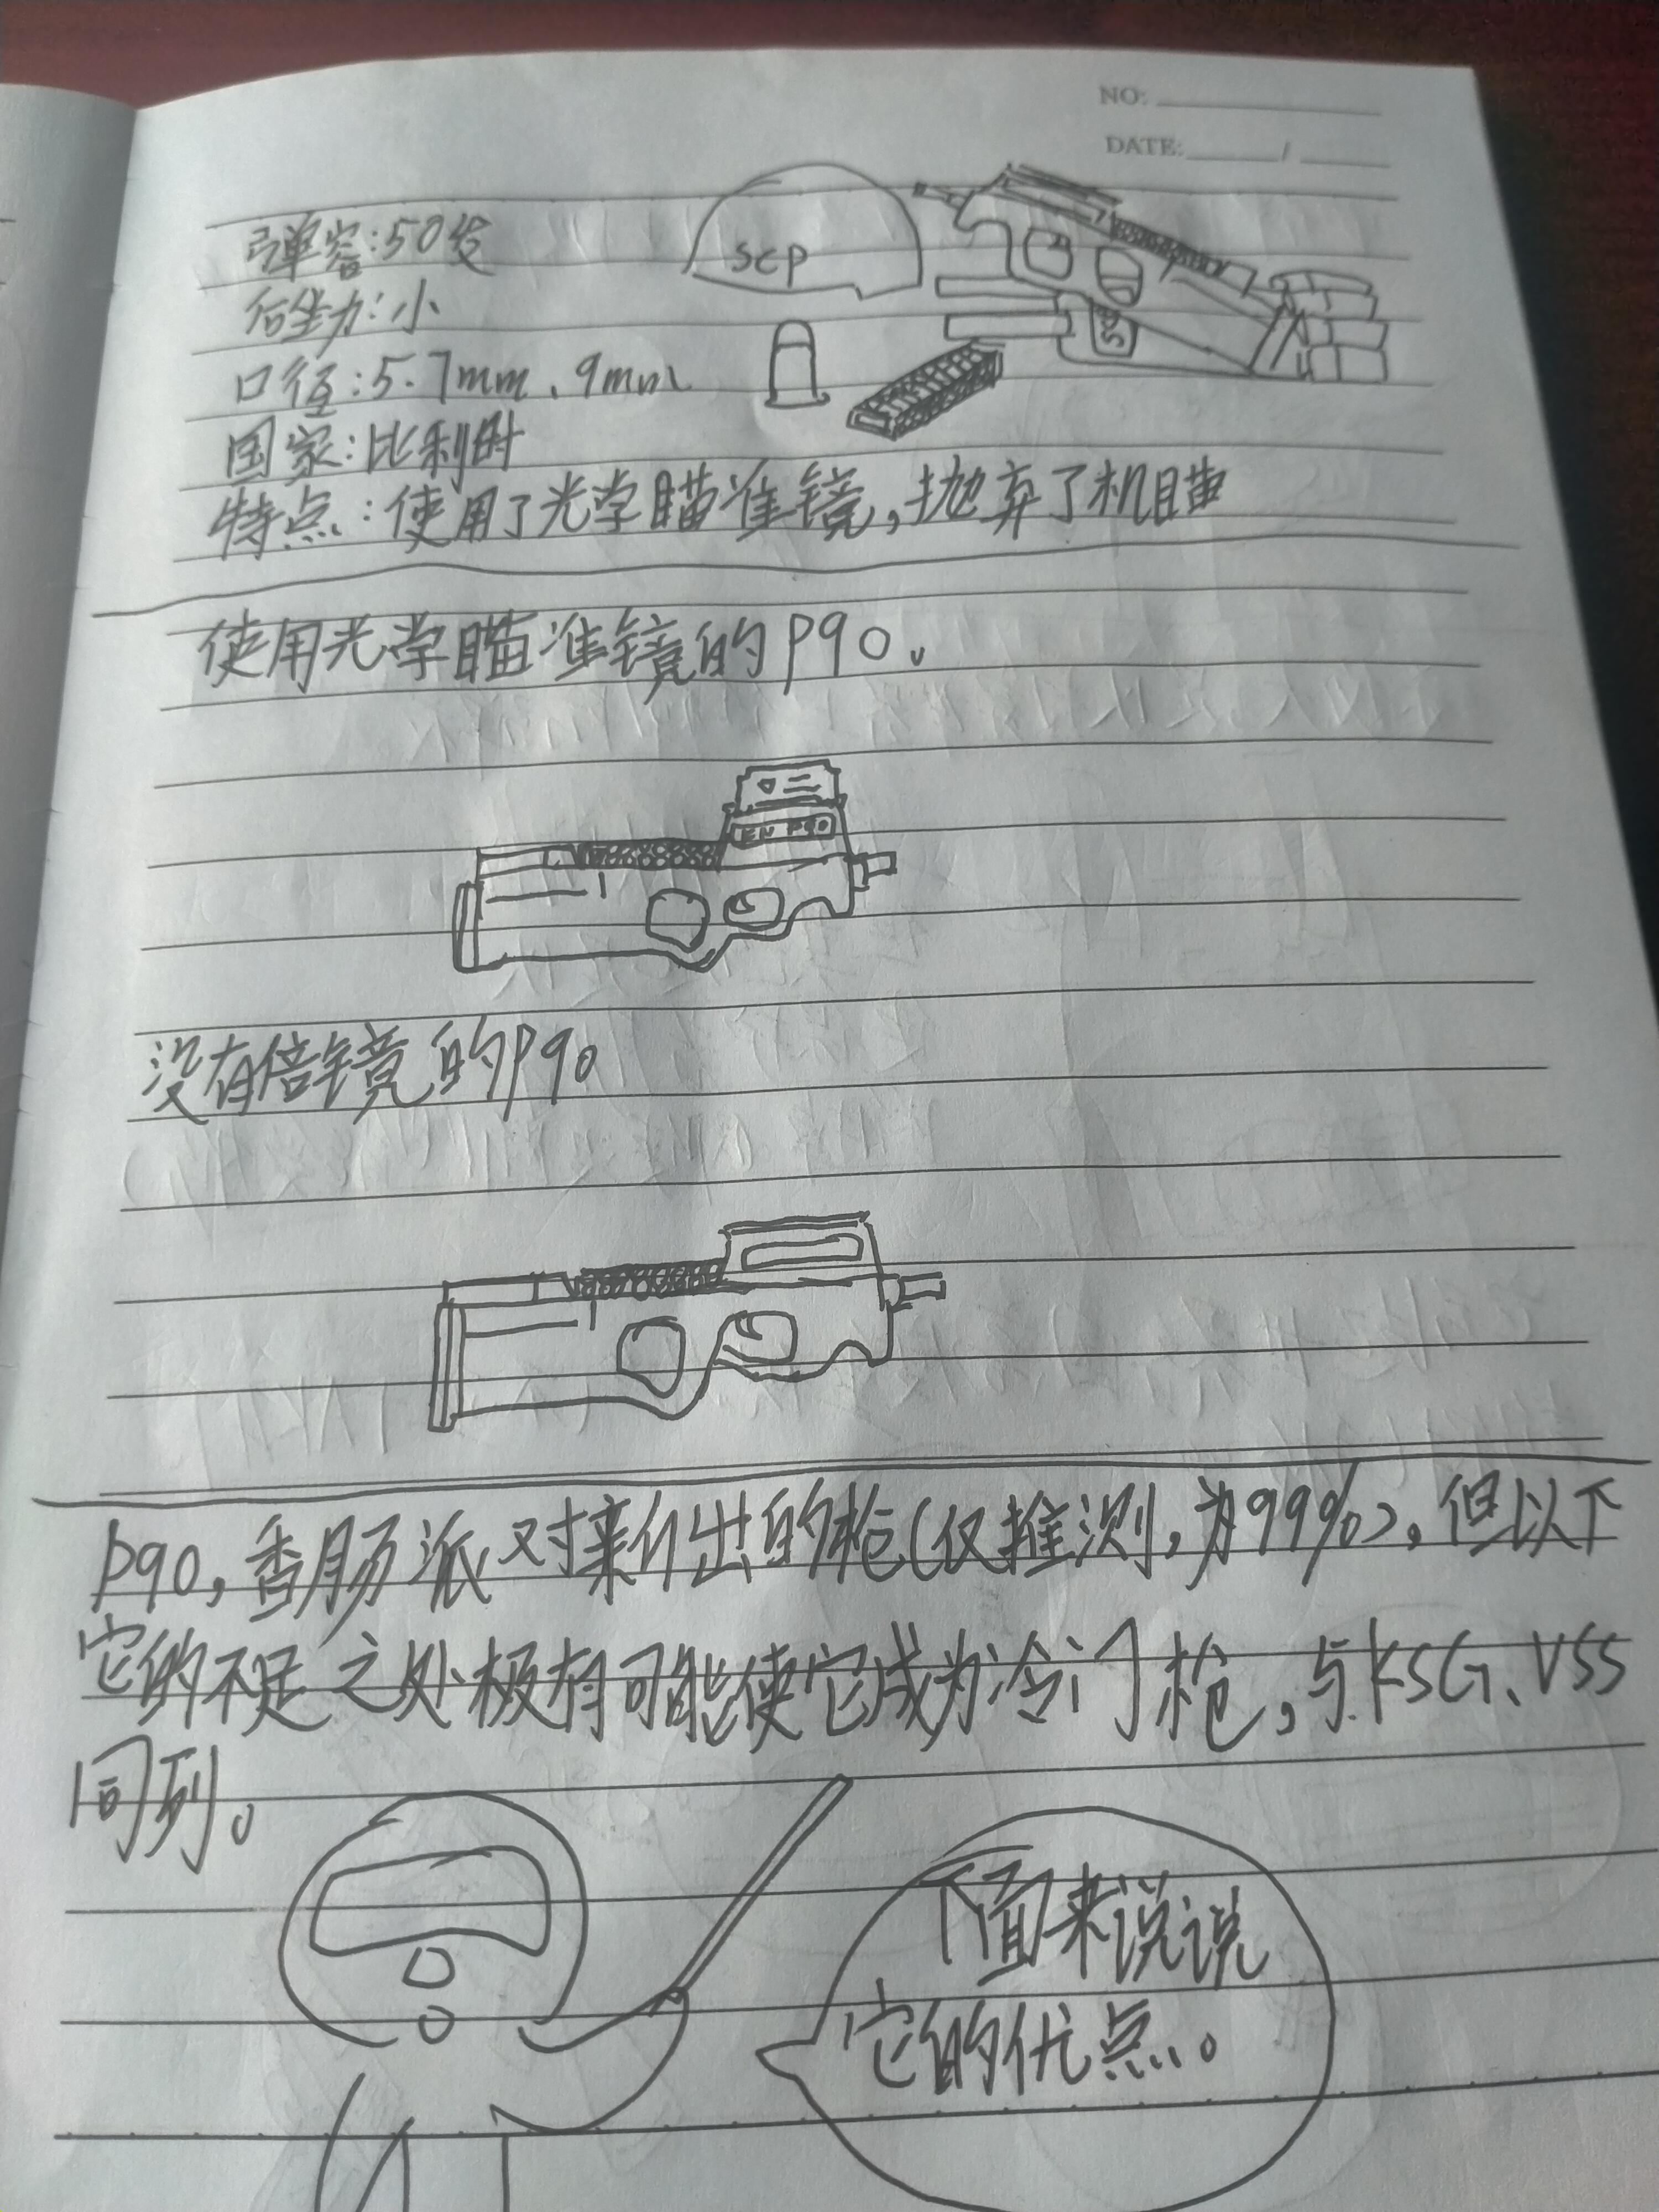 NO:
DATE: /
弹容:50发
SCP
后坐力:小
口径:5.7mm、9mm
国家:比利时
特点:使用了光学瞄准镜,抛弃了机瞄
使用光学瞄准镜的P90。
P90
没有倍镜的P90
P90,香肠派对新出的枪(仅推测,为99%),但以下
它的不足之处极有可能使它成为冷门枪,与KSG、VSS
同列。
下面来说说
它的优点。